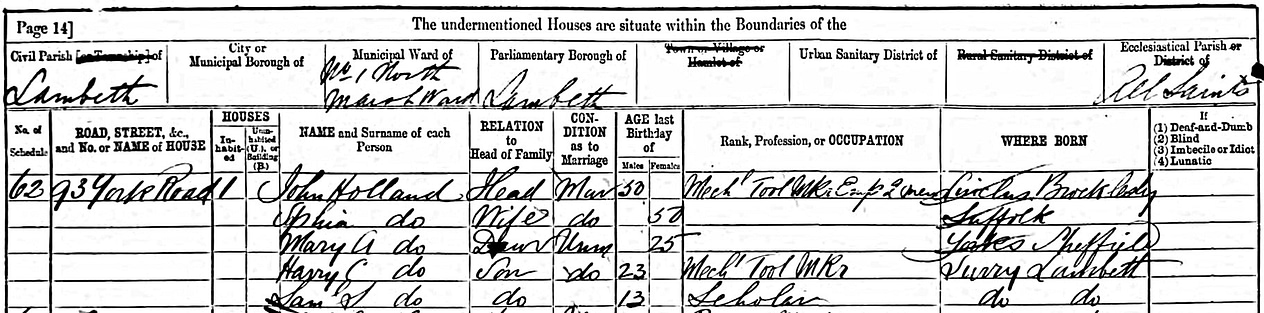 Page 14]
The undermentioned Houses are situate within the Boundaries of the
Civil Parish [or Township] of
City or Municipal Borough of
Municipal Ward of
Parliamentary Borough of
Town or Village or Hamlet of
Urban Sanitary District of
Rural Sanitary District of
Ecclesiastical Parish or District of
Lambeth
No. 1 North Marsh Ward
Lambeth
All Saints
No. of Schedule
ROAD, STREET, &c., and No. or NAME of HOUSE
HOUSES
In-habit-ed
Unin-habited (U.), or Building (B.)
NAME and Surname of each Person
RELATION to Head of Family
CON-DITION as to Marriage
AGE last Birthday of
Males
Females
Rank, Profession, or OCCUPATION
WHERE BORN
If
(1) Deaf-and-Dumb
(2) Blind
(3) Imbecile or Idiot
(4) Lunatic
62 93 York Road 1 John Holland Head Mar 50 Mechl Tool Mkr Emp 2 men
Sophia do Wife do 50 Suffolk
Mary A do Daur Unm 25 Yorks Sheffield
Harry C do Son do 23 Mechl Tool Mkr Surry Lambeth
Saml S do do 13 Scholar do do